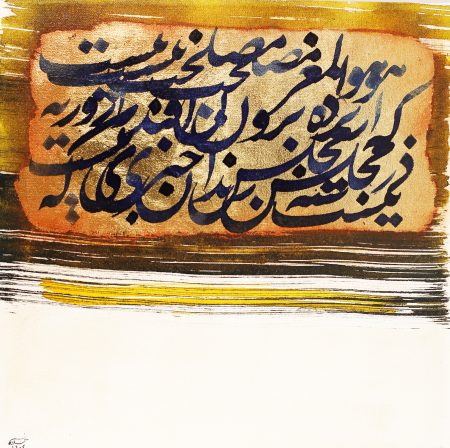 هو المعز مصلحت نیست
که از پرده برون افتد راز ور نه
در مجلس رندان خبری نیست که نیست